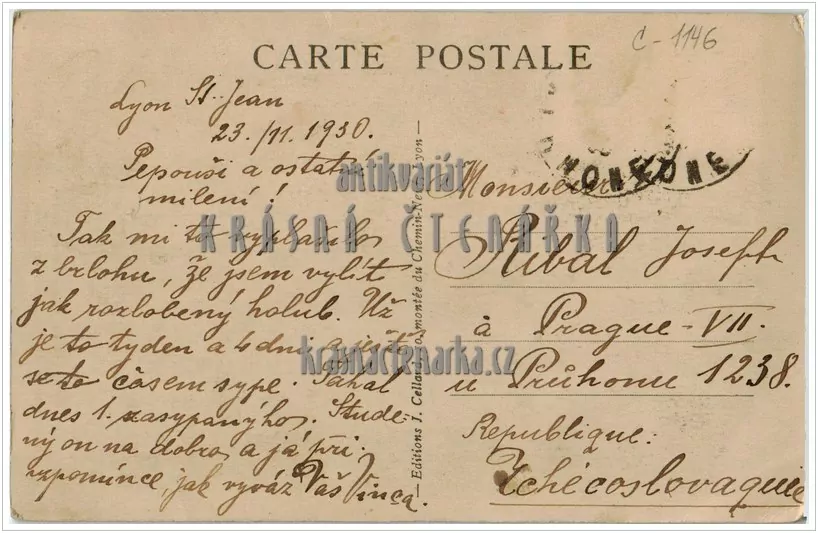 C-1146
CARTE POSTALE
Lyon St. Jean
23./11. 1930.
Pepouši a ostatní
milení!
Tak mi to vyplašilo
z brlohu, že jsem vylít
jak rozlobený holub. Už
je to tyden a 4 dni a ještě
se to časem sype. Tahal
dnes 1. zasypanýho. Stude-
ný on na dobro a já při
vzpomínce, jak vyváz Váš Vinca.
— Editions J. Cellard, montée du Chemin-Neuf, Lyon —
Monsieur
Ribal Joseph
à Prague-VII.
u Průhonu 1238.
Republique:
Tchécoslovaquie
antikvariát
KRÁSNÁ ČTENÁŘKA
krasnactenarka.cz